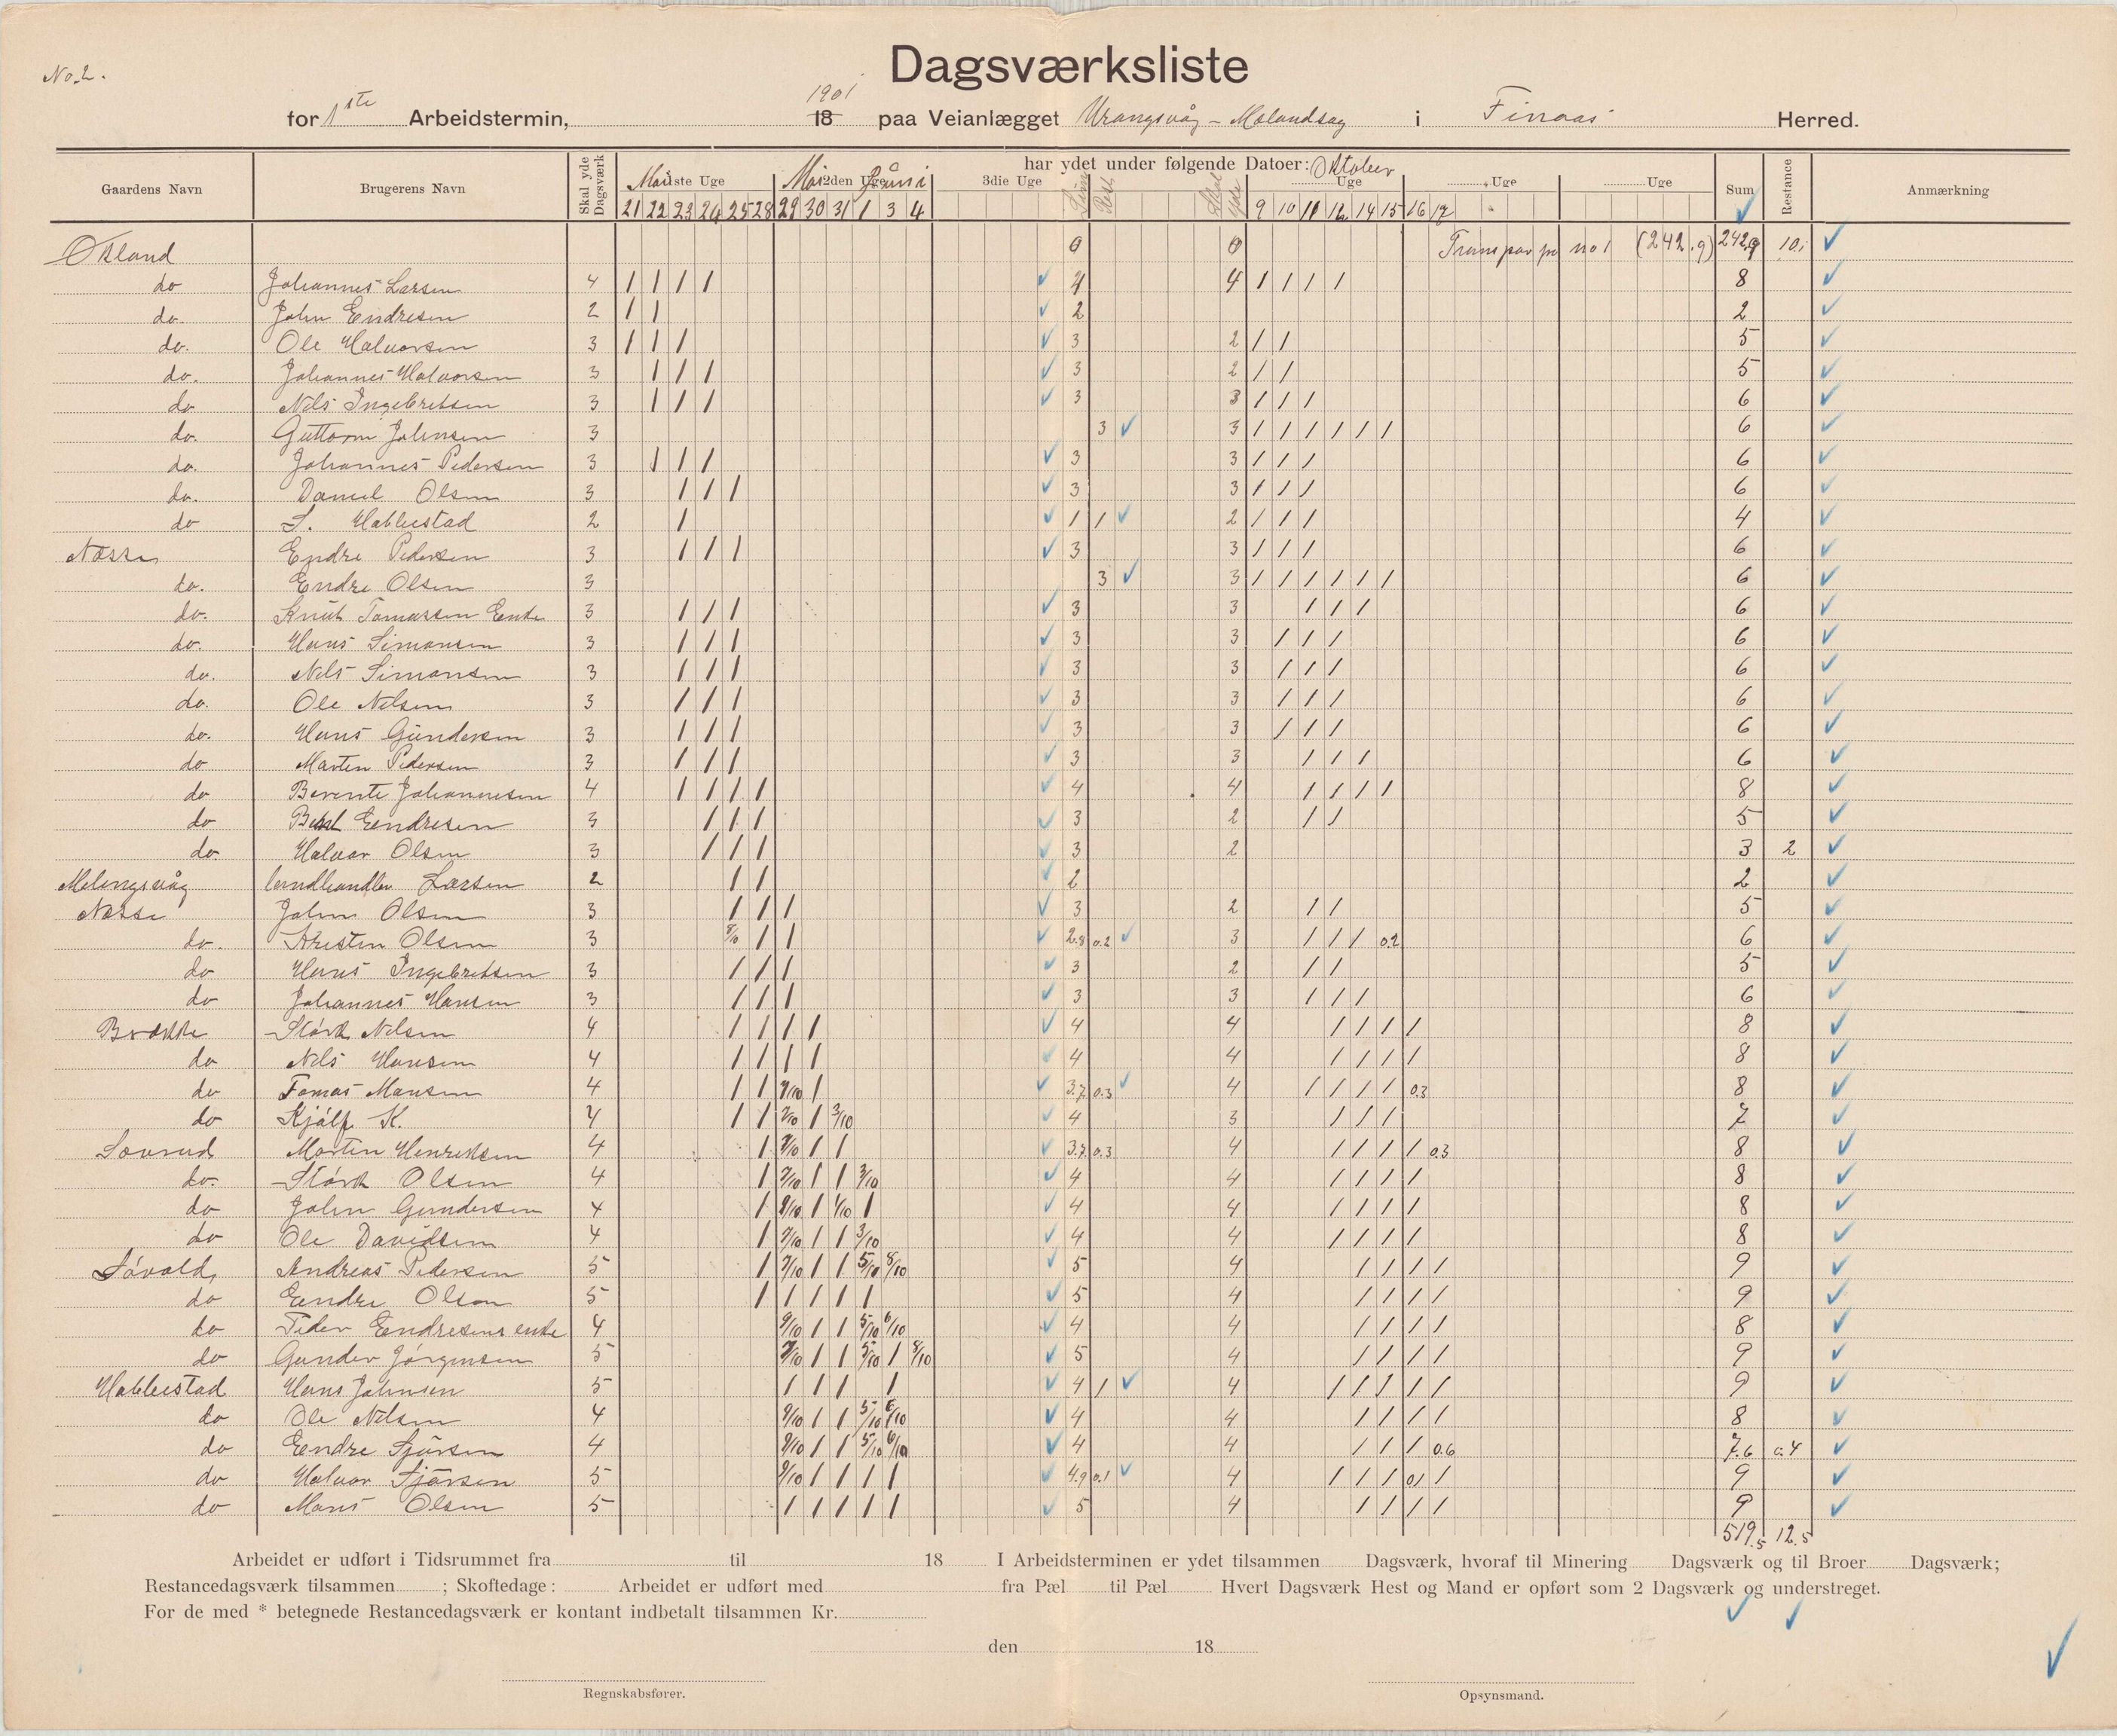 No. 2.
Dagsværksliste
for 1ste Arbeidstermin, 18 1901 paa Veianlægget Urangsvåg - Mælandsåg i Finaas Herred.
Gaardens Navn | Brugerens Navn | Skal yde Dagsværk | har ydet under følgende Datoer: Oktober | Sum | Restance | Anmærkning
Mai 1ste Uge | Mai 2den Uge Juni | 3die Uge | Sum | Rest | Skal yde | Uge | Uge | Uge
21 22 23 24 25 28 29 30 31 1 3 4 | 9 10 11 12 14 15 16 17
Økland | 0 | 0 | Transpor fra no 1 (242.9) 242.9 | 10.1
do Johannes Larsen 4 / / / / 4 4 / / / / 8
do. John Endresen 2 / / 2 2
do. Ole Halvorsen 3 / / / 3 2 / / 5
do. Johannes Halvorsen 3 / / / 3 2 / / 5
do Nils Ingebretsen 3 / / / 3 3 / / / 6
do. Guttorm Johnsen 3 3 3 / / / / / / 6
do. Johannes Pedersen 3 / / / 3 3 / / / 6
do. Daniel Olsen 3 / / / 3 3 / / / 6
do S. Habbestad 2 / 1 1 2 / / / 4
Næsse Endre Pedersen 3 / / / 3 3 / / / 6
do. Endre Olsen 3 3 3 / / / / / / 6
do. Knut Tomassen Enke 3 / / / 3 3 / / / 6
do. Hans Simonsen 3 / / / 3 3 / / / 6
do. Nels Simonsen 3 / / / 3 3 / / / 6
do. Ole Nelsen 3 / / / 3 3 / / / 6
do. Hans Gundersen 3 / / / 3 3 / / / 6
do Marten Pedersen 3 / / / 3 3 / / / 6
do Berente Johannesen 4 / / / / 4 4 / / / / 8
do Endresen 3 / / / 3 2 / / 5
do. Halvor Olsen 3 / / / 3 2 3 2
Melingsvåg landhandler Larsen 2 / / 2 2
Næsse John Olsen 3 / / / 3 2 / / 5
do. Kristen Olsen 3 8/10 / / 2.8 0.2 3 / / / 0.2 6
do Hans Ingebretsen 3 / / / 3 2 / / 5
do Johannes Hansen 3 / / / 3 3 / / / 6
Brække Størk Nelsen 4 / / / / 4 4 / / / / 8
do Nels Hansen 4 / / / / 4 4 / / / / 8
do Tomas Mansen 4 / / 7/10 / 3.7 0.3 4 / / / / 0.3 8
do Kjálf K. 4 / / 7/10 / 3/10 4 3 / / / 7
Sørrud Morten Henriksen 4 / 7/10 / / 3.7 0.3 4 / / / / 0.3 8
do. Størk Olsen 4 / 7/10 / / 3/10 4 4 / / / / 8
do John Gundersen 4 / 9/10 / 1/10 / 4 4 / / / / 8
do Ole Davidsen 4 / 7/10 / / 3/10 4 4 / / / / 8
Løvold Andreas Pedersen 5 / 7/10 / / 5/10 8/10 5 4 / / / / 9
do Endre Olson 5 / / / / / 5 4 / / / / 9
do Peder Endresens enke 4 9/10 / / 5/10 6/10 4 4 / / / / 8
do Gunder Jørgensen 5 7/10 / / 5/10 / 8/10 5 4 / / / / 9
Habbestad Hans Johnsen 5 / / / / 4 1 4 / / / / / 9
do Ole Nelsen 4 9/10 / / 5/10 6/10 4 4 / / / / 8
do Endre Sjursen 4 9/10 / / 5/10 6/10 4 4 / / / 0.6 7.6 0.4
do Halvor Sjursen 5 9/10 / / / / 4.9 0.1 4 / / / 0.1 / 9
do Mons Olsen 5 / / / / / 5 4 / / / / 9
519.5 12.5
Arbeidet er udført i Tidsrummet fra til 18 I Arbeidsterminen er ydet tilsammen Dagsværk, hvoraf til Minering Dagsværk og til Broer Dagsværk;
Restancedagsværk tilsammen ; Skoftedage: Arbeidet er udført med fra Pæl til Pæl Hvert Dagsværk Hest og Mand er opført som 2 Dagsværk og understreget.
For de med * betegnede Restancedagsværk er kontant indbetalt tilsammen Kr.
den 18
Regnskabsfører.
Opsynsmand.